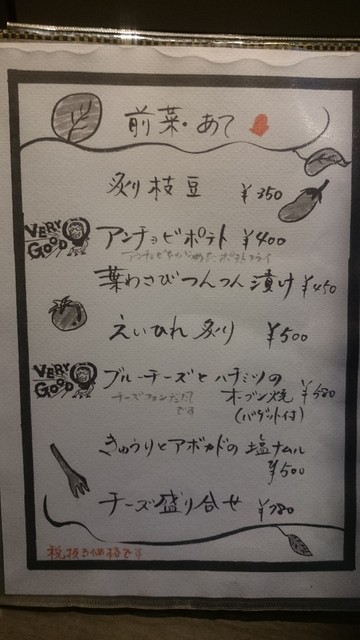 前菜・あて
炙り枝豆 ¥350
VERY GOOD
アンチョビポテト ¥400
葉わさびつんつん漬け ¥450
えいひれ炙り ¥500
VERY GOOD
ブルーチーズとハチミツの
オーブン焼 ¥580
チーズフォンデュ風
です
(バゲット付)
きゅうりとアボカドの塩ナムル
¥500
チーズ盛り合せ ¥780
税抜き価格です